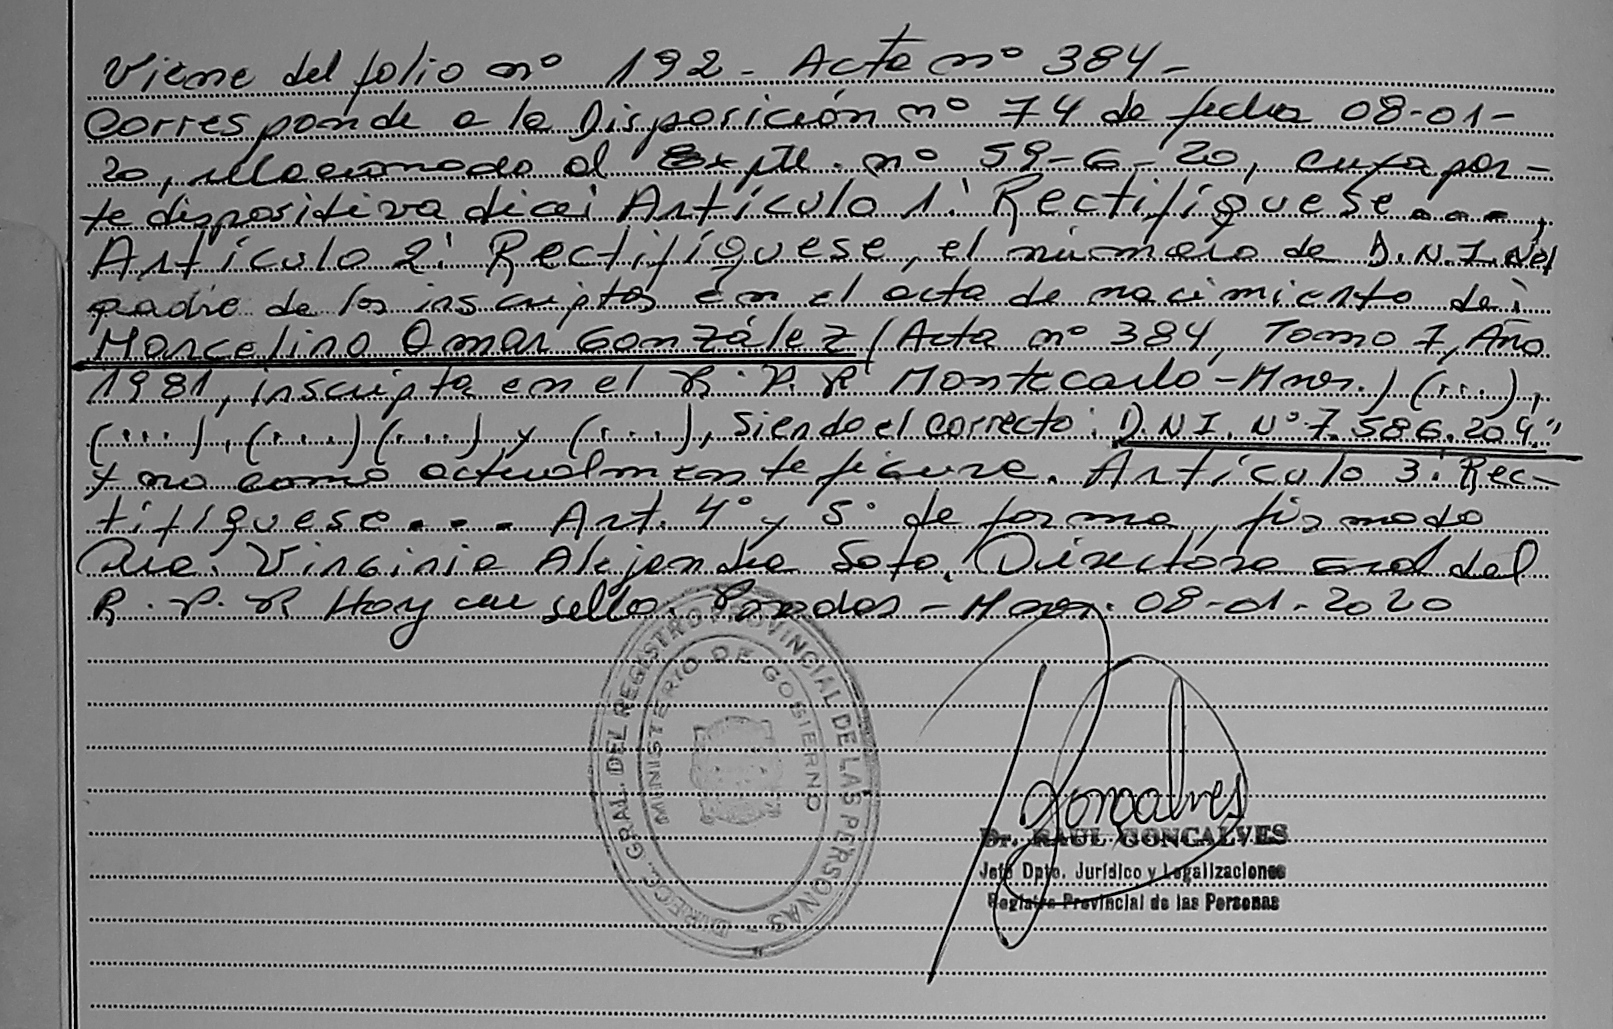 Viene del folio nº 192 - Acta nº 384 -
Corresponde a la Disposición nº 74 de fecha 08-01-
20, relacionado al Expte. nº 59-G-20, cuya par-
te dispositiva dice: Artículo 1: Rectifíquese....,
Artículo 2: Rectifíquese, el número de D.N.I. del
padre de los inscriptos en el acta de nacimiento de:
Marcelino Omar González (Acta nº 384, Tomo 7, Año
1981, inscripta en el R.P.P Montecarlo-Mnes.) (...),
(....), (....) (....) y (....), siendo el correcto: D.N.I. Nº 7.586.204."
y no como actualmente figura. Artículo 3: Rec-
tifíquese.... Art. 4º y 5º de forma, firmado
Virginia Alejandra Soto, Directora Gral del
R.P.P Hoy sello. Posadas - Mnes. 08-01-2020
DIRECC. GRAL. DEL REGISTRO PROVINCIAL DE LAS PERSONAS -
MINISTERIO DE GOBIERNO
Gonçalves
Dr. RAUL GONCALVES
Jefe Dpto. Jurídico y Legalizaciones
Registro Provincial de las Personas